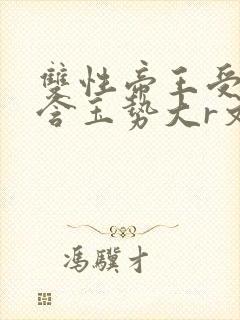 雙性帝王受
含玉勢大r文
馮驥才